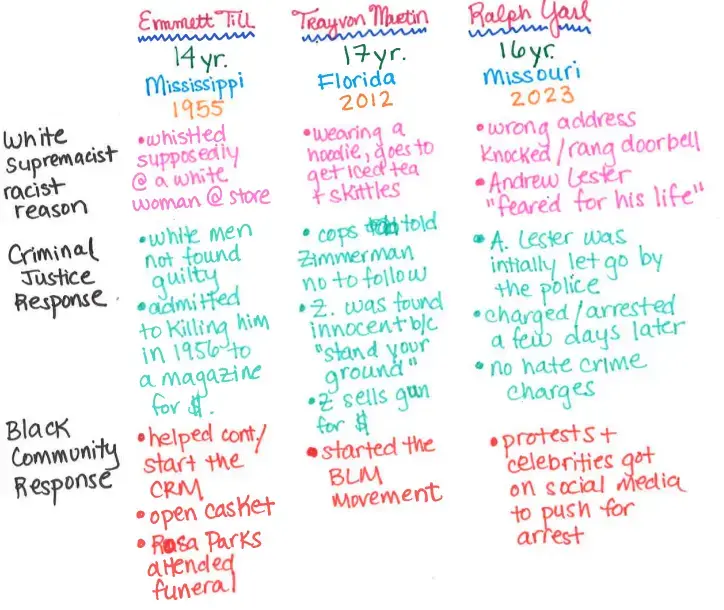 Emmett Till
14yr.
Mississippi
1955
Trayvon Martin
17yr.
Florida
2012
Ralph Yarl
16yr.
Missouri
2023
White
Supremacist
racist
reason
•whistled
supposedly
@ a white
woman @ store
•wearing a
hoodie, goes to
get iced tea
+ skittles
•wrong address
knocked/rang doorbell
•Andrew Lester
"feared for his life"
Criminal
Justice
Response
•white men
not found
guilty
•admitted
to killing him
in 1956 to
a magazine
for $.
•cops told
Zimmerman
no to follow
•Z. was found
innocent b/c
"stand your
ground"
•Z sells gun
for $
•A. Lester was
intially let go by
the police
•charged/arrested
a few days later
•no hate crime
charges
Black
Community
Response
•helped cont/
start the
CRM
•open casket
•Rosa Parks
attended
funeral
•started the
BLM
Movement
•protests +
celebrities got
on social media
to push for
arrest